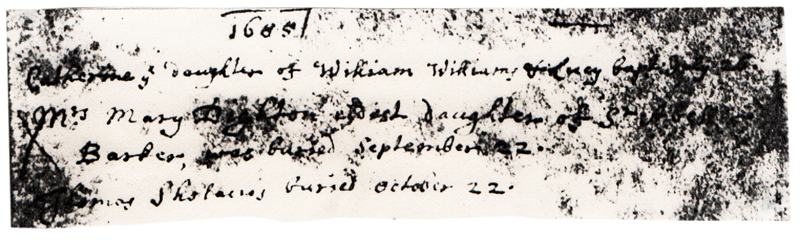 1685
Catherine yᵉ daughter of William Williams
Mʳˢ Mary Deighton eldest Daughter of Sʳ
Barker, was buried September 22.
Thomas buried October 22.